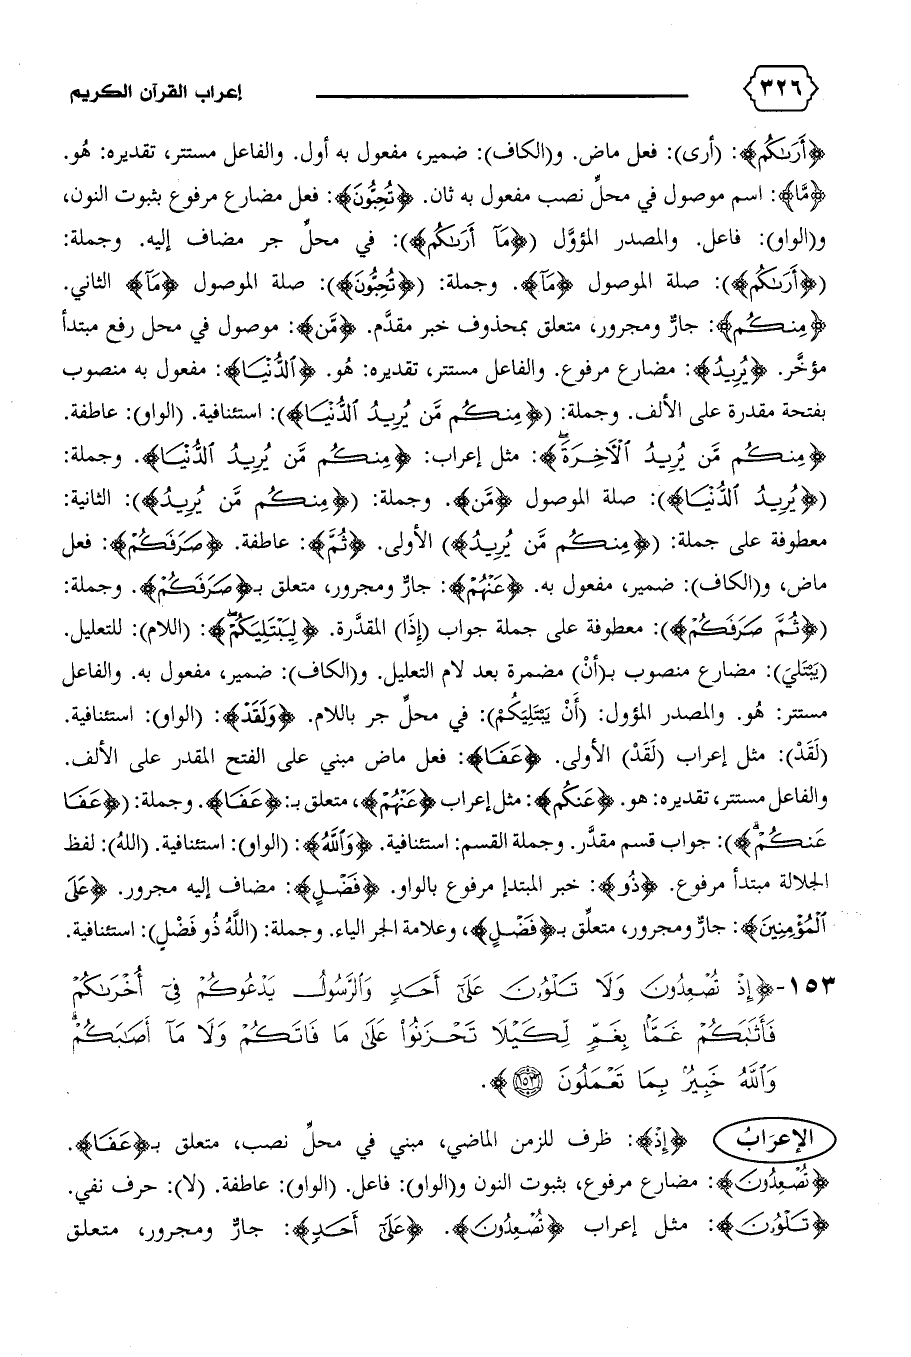 ٣٢٦ إعراب القرآن الكريم
﴿أَرَىٰكُم﴾: (أرى): فعل ماض. و(الكاف): ضمير، مفعول به أول. والفاعل مستتر، تقديره: هُو.
﴿مَّا﴾: اسم موصول في محلِّ نصب مفعول به ثان. ﴿تُحِبُّونَ﴾: فعل مضارع مرفوع بثبوت النون،
و(الواو): فاعل. والمصدر المؤوَّل (﴿مَآ أَرَىٰكُم﴾): في محلِّ جر مضاف إليه. وجملة:
(﴿أَرَىٰكُم﴾): صلة الموصول ﴿مَآ﴾. وجملة: (﴿تُحِبُّونَ﴾): صلة الموصول ﴿مَآ﴾ الثاني.
﴿مِنكُم﴾: جارٌّ ومجرور، متعلق بمحذوف خبر مقدَّم. ﴿مَّن﴾: موصول في محل رفع مبتدأ
مؤخَّر. ﴿يُرِيدُ﴾: مضارع مرفوع. والفاعل مستتر، تقديره: هُو. ﴿ٱلدُّنْيَا﴾: مفعول به منصوب
بفتحة مقدرة على الألف. وجملة: (﴿مِنكُم مَّن يُرِيدُ ٱلدُّنْيَا﴾): استئنافية. (الواو): عاطفة.
﴿مِنكُم مَّن يُرِيدُ ٱلْآخِرَةَۖ﴾: مثل إعراب: ﴿مِنكُم مَّن يُرِيدُ ٱلدُّنْيَا﴾. وجملة:
(﴿يُرِيدُ ٱلدُّنْيَا﴾): صلة الموصول ﴿مَّن﴾. وجملة: (﴿مِنكُم مَّن يُرِيدُ﴾): الثانية:
معطوفة على جملة: (﴿مِنكُم مَّن يُرِيدُ﴾) الأولى. ﴿ثُمَّ﴾: عاطفة. ﴿صَرَفَكُمْ﴾: فعل
ماض، و(الكاف): ضمير، مفعول به. ﴿عَنْهُمْ﴾: جارٌّ ومجرور، متعلق بـ﴿صَرَفَكُمْ﴾. وجملة:
(﴿ثُمَّ صَرَفَكُمْ﴾): معطوفة على جملة جواب (إذَا) المقدَّرة. ﴿لِيَبْتَلِيَكُمْۖ﴾: (اللام): للتعليل.
(يَبْتَلِيَ): مضارع منصوب بـ(أنْ) مضمرة بعد لام التعليل. و(الكاف): ضمير، مفعول به. والفاعل
مستتر: هُو. والمصدر المؤول: (أَنْ يَبْتَلِيَكُمْ): في محلِّ جر باللام. ﴿وَلَقَدْ﴾: (الواو): استئنافية.
(لَقَدْ): مثل إعراب (لَقَدْ) الأولى. ﴿عَفَا﴾: فعل ماض مبني على الفتح المقدر على الألف.
والفاعل مستتر، تقديره: هو. ﴿عَنكُم﴾: مثل إعراب ﴿عَنْهُمْ﴾، متعلق بـ: ﴿عَفَا﴾. وجملة: (﴿عَفَا
عَنكُمْۗ﴾): جواب قسم مقدَّر. وجملة القسم: استئنافية. ﴿وَٱللَّهُ﴾: (الواو): استئنافية. (اللهُ): لفظ
الجلالة مبتدأ مرفوع. ﴿ذُو﴾: خبر المبتدإ مرفوع بالواو. ﴿فَضْلٍ﴾: مضاف إليه مجرور. ﴿عَلَى
ٱلْمُؤْمِنِينَ﴾: جارٌّ ومجرور، متعلِّق بـ﴿فَضْلٍ﴾، وعلامة الجر الياء. وجملة: (اللَّهُ ذُو فَضْلٍ): استئنافية.
١٥٣- ﴿إِذْ تُصْعِدُونَ وَلَا تَلْوُۥنَ عَلَىٰٓ أَحَدٍ وَٱلرَّسُولُ يَدْعُوكُمْ فِىٓ أُخْرَىٰكُمْ
فَأَثَٰبَكُمْ غَمًّۢا بِغَمٍّ لِّكَيْلَا تَحْزَنُوا۟ عَلَىٰ مَا فَاتَكُمْ وَلَا مَآ أَصَٰبَكُمْۗ
وَٱللَّهُ خَبِيرٌۢ بِمَا تَعْمَلُونَ ١٥٣﴾.
الإعرَابُ ﴿إِذْ﴾: ظرف للزمن الماضي، مبني في محلِّ نصب، متعلق بـ﴿عَفَا﴾.
﴿تُصْعِدُونَ﴾: مضارع مرفوع، بثبوت النون و(الواو): فاعل. (الواو): عاطفة. (لا): حرف نفي.
﴿تَلْوُۥنَ﴾: مثل إعراب ﴿تُصْعِدُونَ﴾. ﴿عَلَىٰٓ أَحَدٍ﴾: جارٌّ ومجرور، متعلق